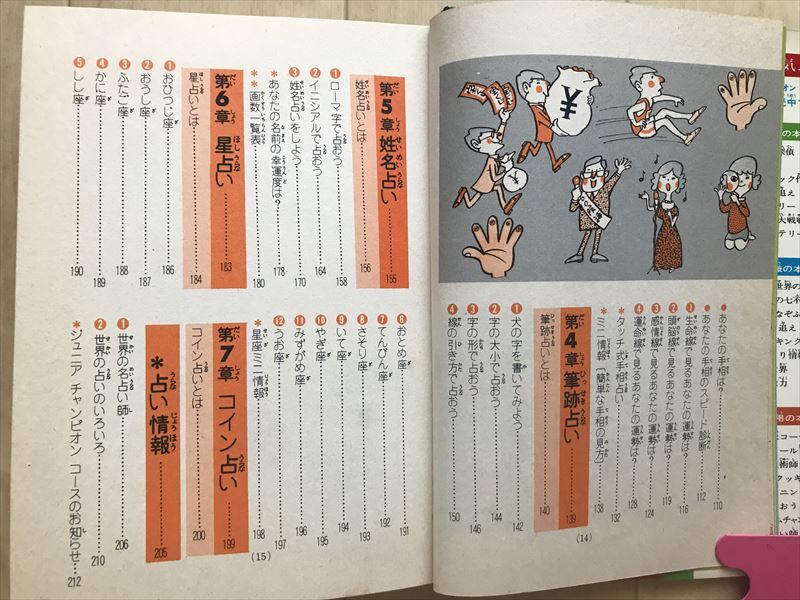 あなたの手相は?……110
あなたの手相のスピード診断……112
❶生命線で見るあなたの運勢は?……116
❷頭脳線で見るあなたの運勢は?……119
❸感情線で見るあなたの運勢は?……124
❹運命線で見るあなたの運勢は?……128
*タッチ式手相占い……132
*ミニ情報(簡単な手相の見方)……138
第4章 筆跡占い……139
筆跡占いとは……140
❶犬の字を書いてみよう……142
❷字の大小で占おう……144
❸字の形で占おう……146
❹線の引き方で占おう……150
(14)
第5章 姓名占い……155
姓名占いとは……156
❶ローマ字で占おう……158
❷イニシアルで占おう……164
❸姓名占いをしよう……170
*あなたの名前の幸運度は?……178
*画数一覧表……180
第6章 星占い……183
星占いとは……184
❶おひつじ座……186
❷おうし座……187
❸ふたご座……188
❹かに座……189
❺しし座……190
❻おとめ座……191
❼てんびん座……192
❽さそり座……193
❾いて座……194
❿やぎ座……195
⓫みずがめ座……196
⓬うお座……197
*星座ミニ情報……198
第7章 コイン占い……199
コイン占いとは……200
*占い情報……205
❶世界の名占い師……206
❷世界の占いのいろいろ……210
*ジュニア チャンピオン コースのお知らせ…212
(15)
¥
¥